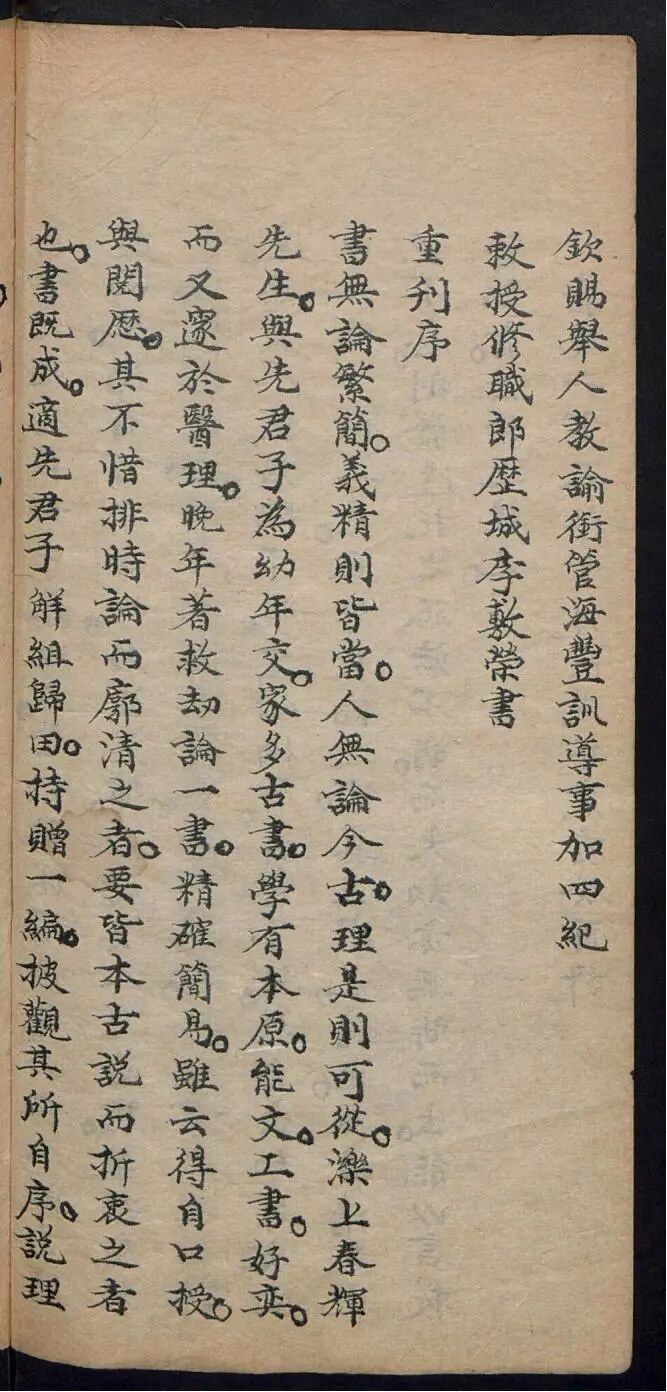 欽賜舉人教諭銜管海豐訓導事加四紀
敕授修職郎歷城李敷榮書
重刊序
書無論繁簡。義精則皆當。人無論今古。理是則可從。濼上春輝
先生。與先君子為幼年交。家多古書。學有本原。能文。工書。好奕。
而又邃於醫理。晚年著救劫論一書。精確簡易。雖云得自口授。
與閱歷。其不惜排時論而廓清之者。要皆本古說而折衷之者
也。書既成。適先君子解組歸田。持贈一編。披觀其所自序。說理